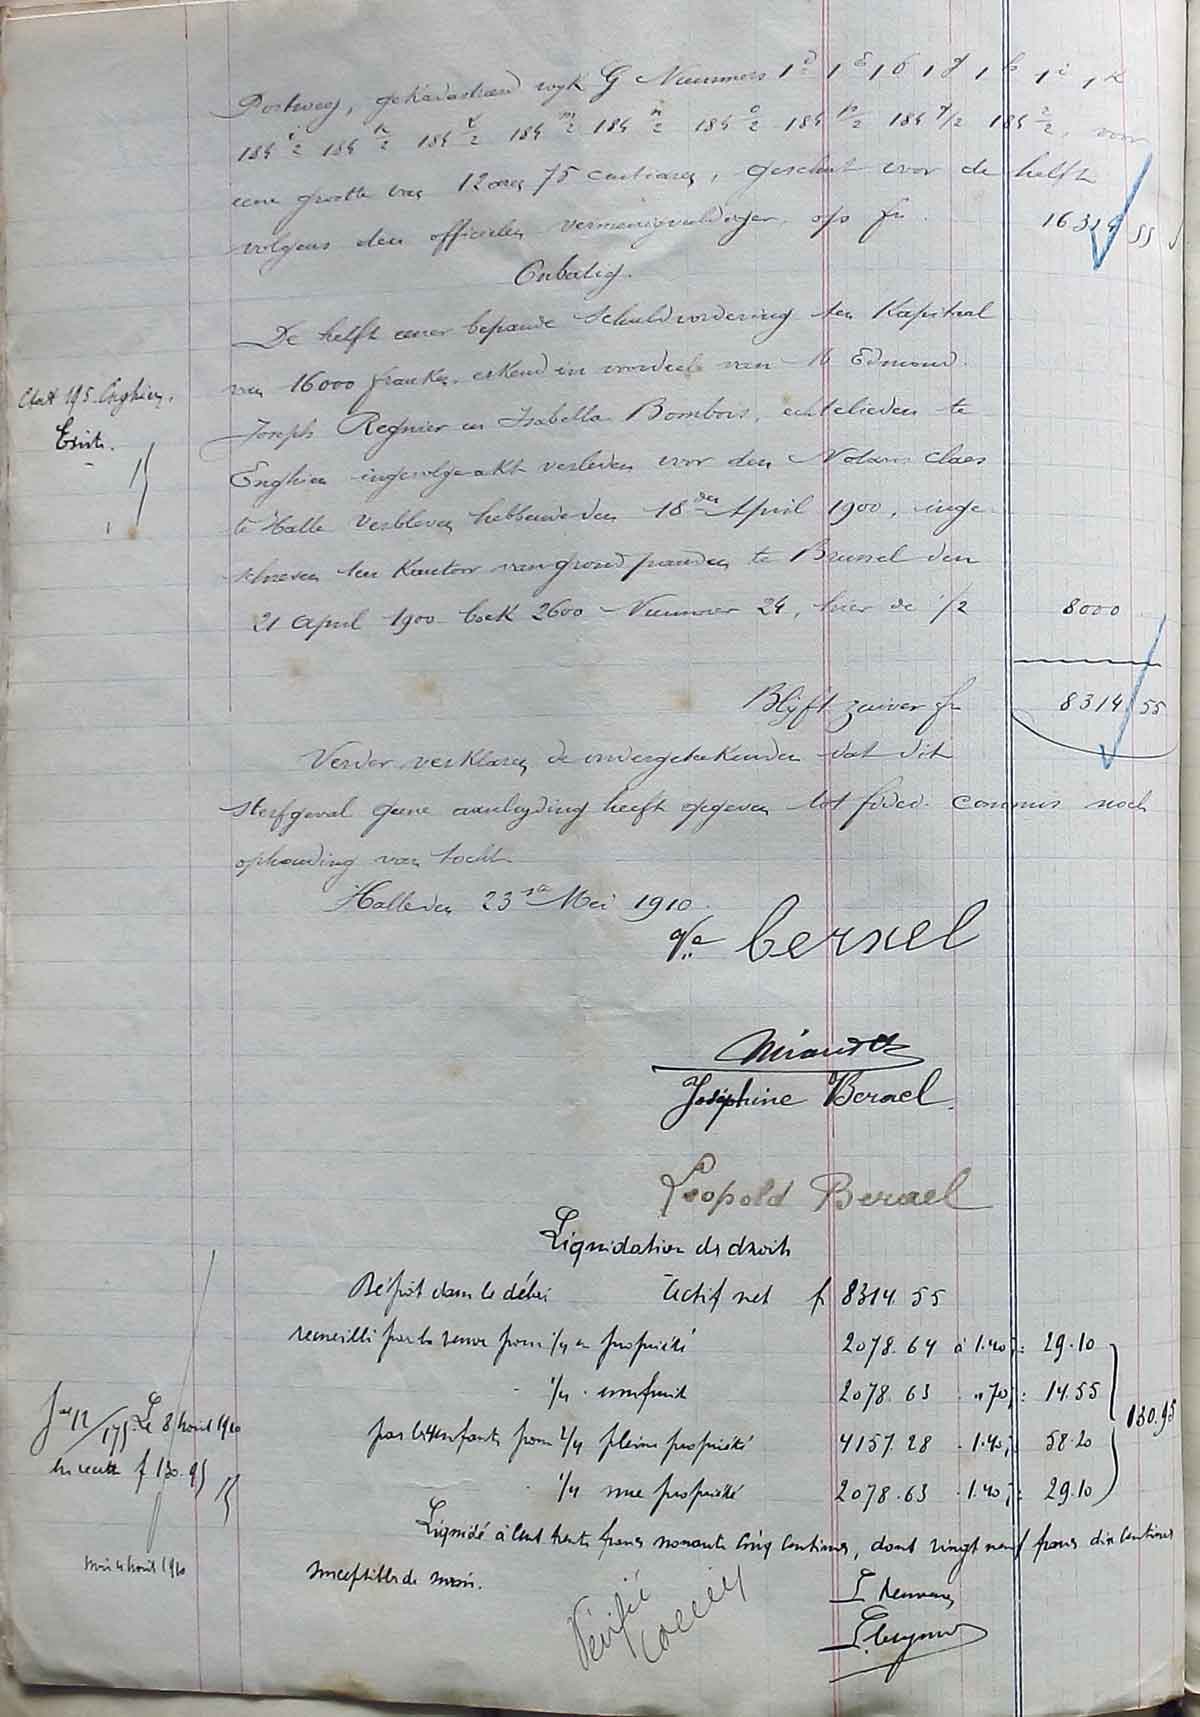 Postweg, gekadastreerd wijk G Nummers
184 i/2 184 k/2 184 l/2 184 m/2 184 n/2 184 o/2 184 p/2 184 q/2 184 r/2, voor
eene grootte van 12 aren 75 centiaren, geschat voor de helft
volgens den officieelen vermenigvuldiger, op fr. 16314 55
Onbatig.
De helft eener bepaande schuldvordering ten Kapitaal
van 16000 franken, erkend in voordeele van Mr Edmond
Joseph Regnier en Isabella Bombois, echtelieden te
Enghien ingevolge akt verleden voor den Notaris Claes
te Halle verbleven hebbende den 18den April 1900, inge
schreven ten Kantoor van grondpanden te Brussel den
21 april 1900 boek 2600 Nummer 24, hier de 1/2 8000
Blijft zuiver fr 8314 55
Verder verklaren de ondergeteekenden dat dit
sterfgeval geene aanleyding heeft gegeven tot fidei commis noch
ophouding van tocht.
Halle den 23sten Mei 1910.
Ve Bernel
Joséphine Berael
Leopold Berael
Liquidation des droits
Dépôt dans le délai Actif net f 8314.55
recueilli par la veuve pour 1/4 en propriété 2078.64 à 1.40 %: 29.10
1/4 usufruit 2078.63 " 70 %: 14.55
par les enfants pour 2/4 pleine propriété 4157.28 1.40 %: 58.20
1/4 nue propriété 2078.63 1.40 %: 29.10
130.95
Liquidé à Cent trente francs nonante cinq centimes, dont vingt neuf francs dix centimes
susceptibles de
Vérifié
Enghien.
Exist.
Le 8 Aout 1910
en recette f 130.95
4 Aout 1910